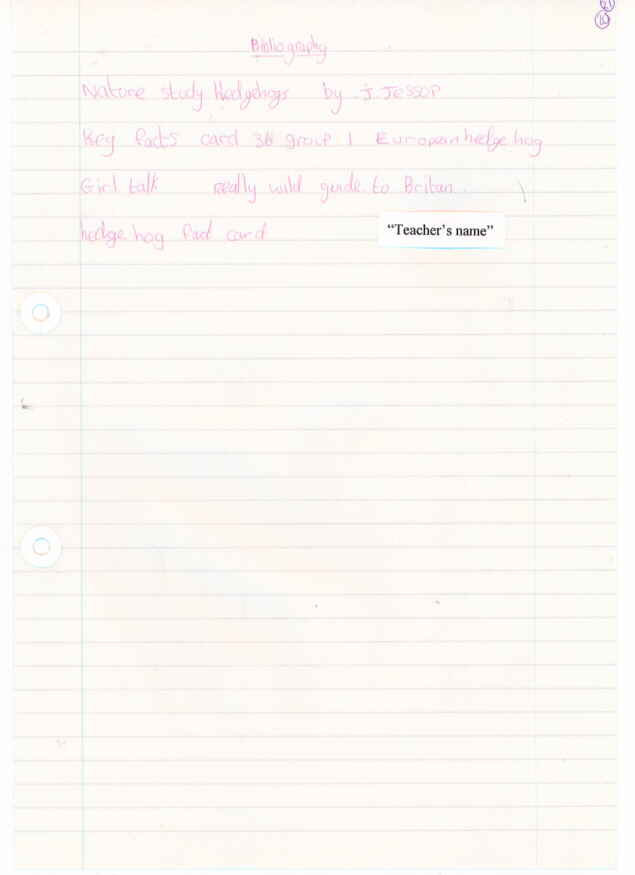 21
19
Bibliography
Nature study Hedgehogs by J. Jessop
Key facts card 36 group 1 European hedge hog
Girl talk really wild guide to Britan.
hedge hog fact card "Teacher's name"